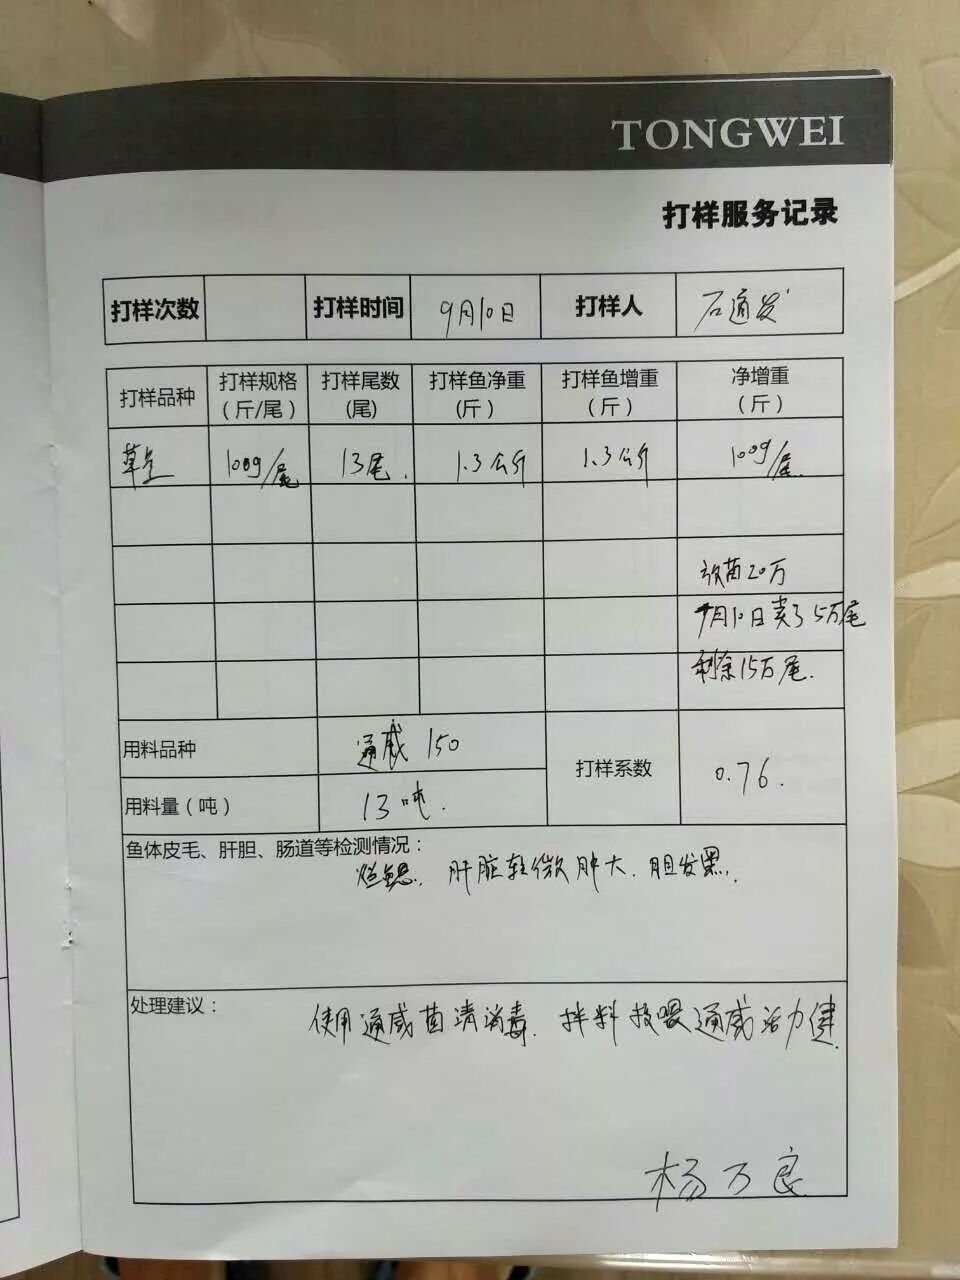 TONGWEI
打样服务记录
打样次数 打样时间 9月10日 打样人 石道发
打样品种 打样规格（斤/尾） 打样尾数(尾) 打样鱼净重（斤） 打样鱼增重（斤） 净增重（斤）
草鱼 100g/尾 13尾. 1.3公斤 1.3公斤 100g/尾.
放苗20万
9月10日卖了5万尾
剩余15万尾.
用料品种 通威 150
打样系数 0.76.
用料量（吨） 13吨.
鱼体皮毛、肝胆、肠道等检测情况：
烂鳃. 肝脏轻微肿大. 胆发黑.
处理建议：
使用通威菌清消毒. 拌料投喂通威活力健
杨万良